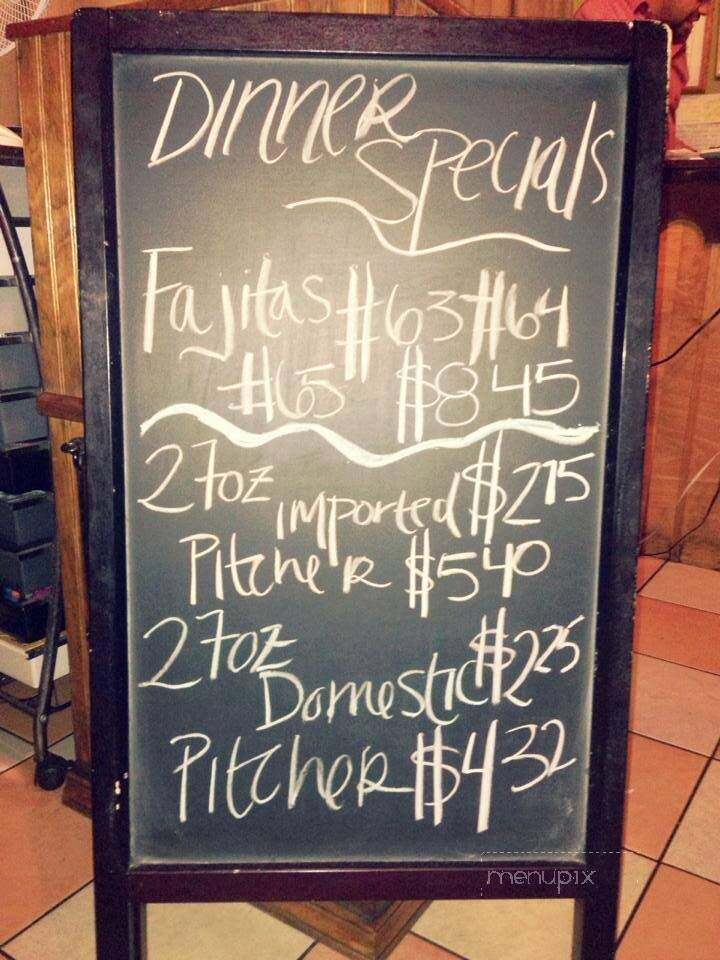 Dinner
Specials
Fajitas #63 #64
#65 $8 45
27oz imported $2 75
Pitcher $5 40
27oz Domestic $2 25
Pitcher $4 32
menupix